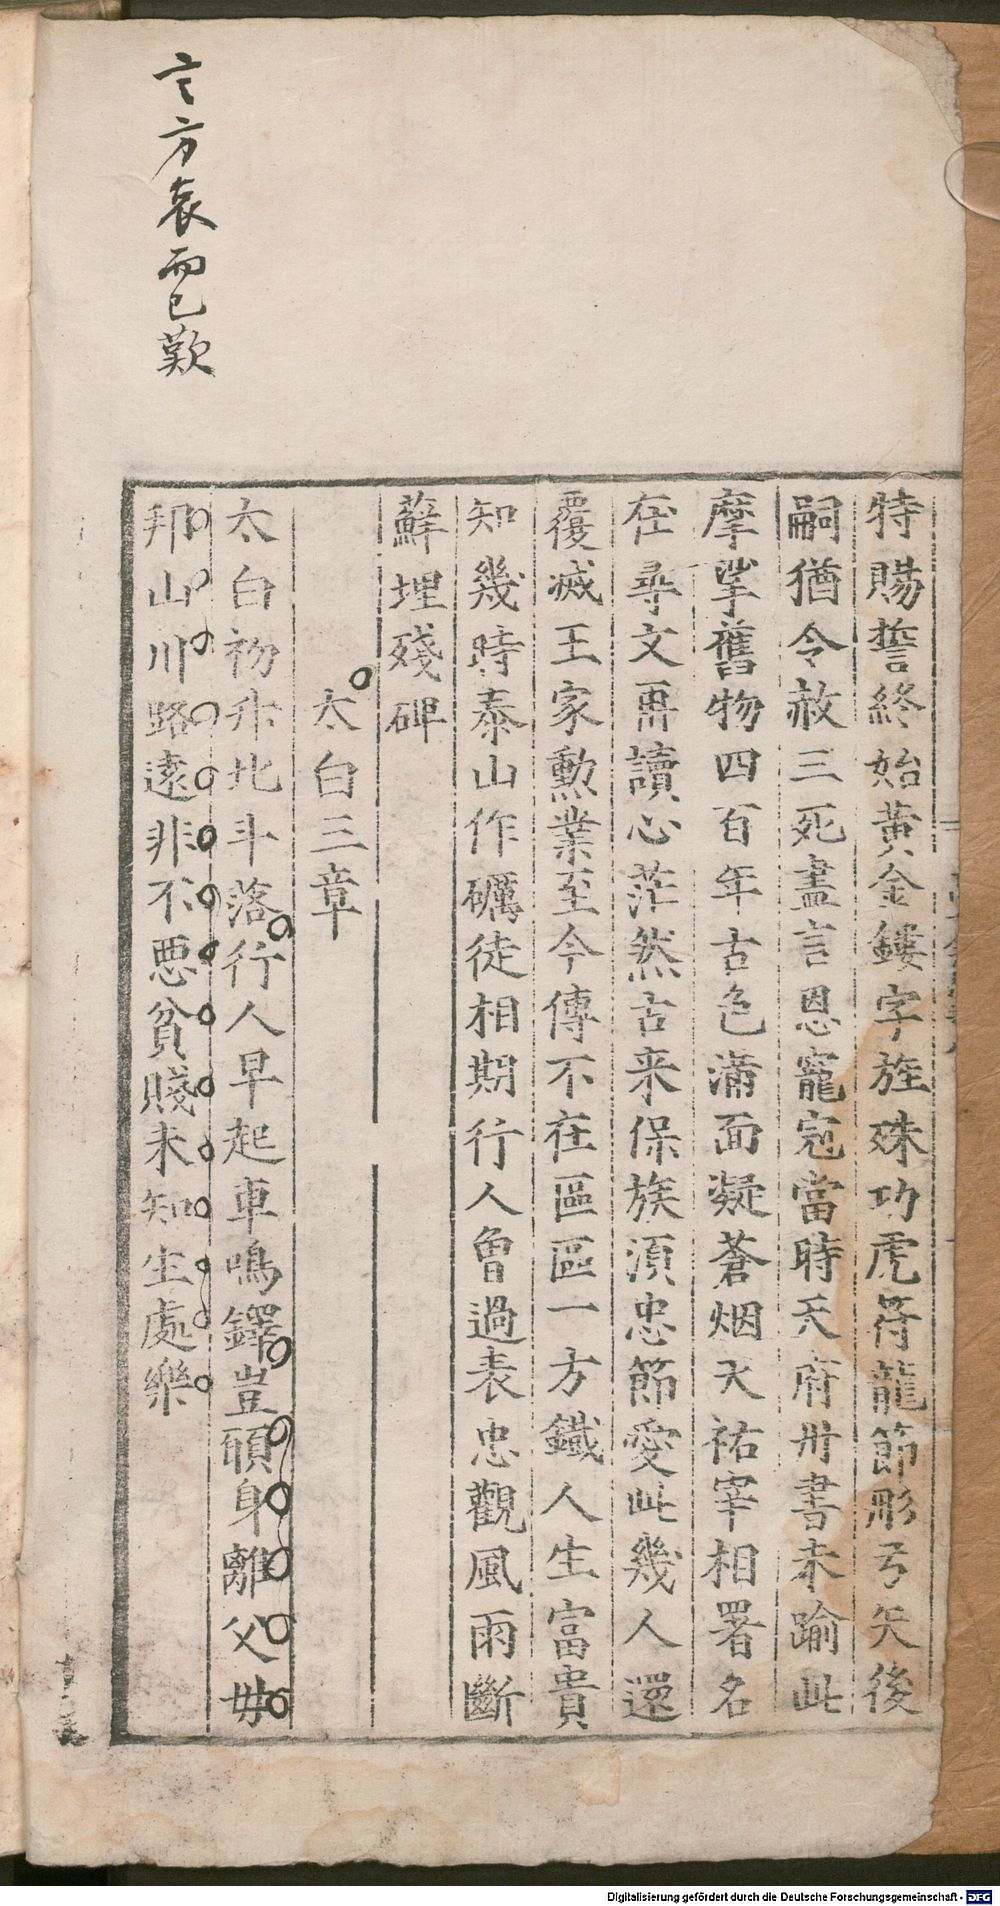 特賜誓終始黃金鏤字旌殊功虎符龍節彤弓矢後
嗣猶令赦三死盡言恩寵冠當時天府丹書未踰此
摩挲舊物四百年古色滿面凝蒼烟天祐宰相署名
在尋文再讀心茫然古来保族須忠節受此幾人還
覆滅王家勳業至今傳不在區區一方鐵人生富貴
知幾時泰山作礪徒相期行人曾過表忠觀風雨斷
蘚埋殘碑
太白三章
太白初升北斗落行人早起車鳴鐸豈願身離父毋
邦山川路遠非不惡貧賤未知生處樂
言方哀而已歎
Digitalisierung gefördert durch die Deutsche Forschungsgemeinschaft - DFG